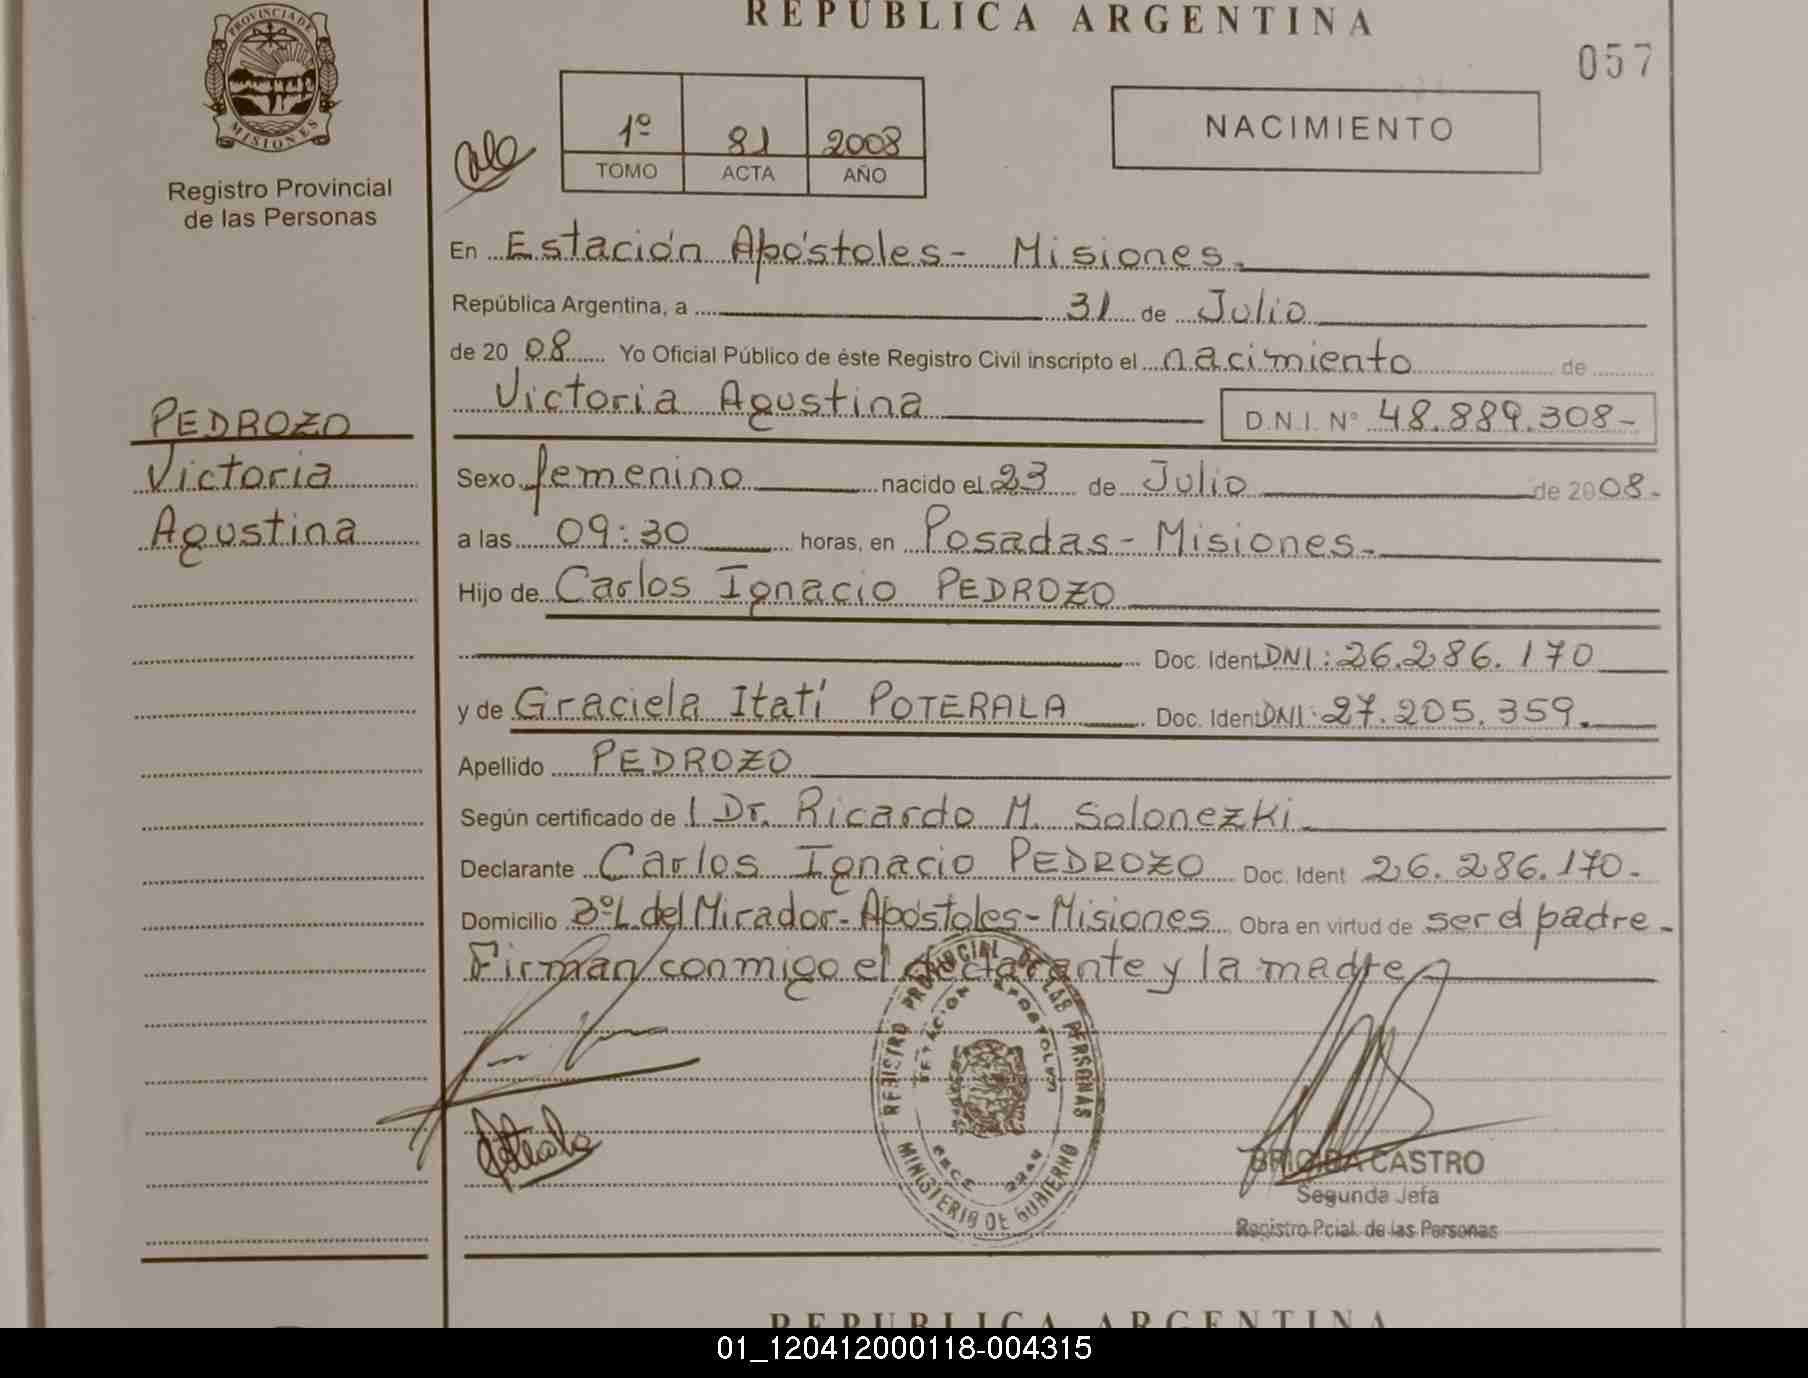 REPUBLICA ARGENTINA
057
PROVINCIA DE MISIONES
Registro Provincial
de las Personas
1º 81 2008
TOMO ACTA AÑO
NACIMIENTO
En Estación Apóstoles - Misiones.
República Argentina, a 31 de Julio
de 2008 Yo Oficial Público de éste Registro Civil inscripto el nacimiento de
Victoria Agustina D.N.I. Nº 48.889.308-
PEDROZO
Victoria
Agustina
Sexo femenino nacido el 23 de Julio de 2008.
a las 09:30 horas, en Posadas - Misiones.
Hijo de Carlos Ignacio PEDROZO
Doc. Ident DNI: 26.286.170
y de Graciela Itatí POTERALA Doc. Ident DNI: 27.205.359.
Apellido PEDROZO
Según certificado de l Dr. Ricardo M. Solonezki.
Declarante Carlos Ignacio PEDROZO Doc. Ident 26.286.170.
Domicilio Bº L. del Mirador - Apóstoles - Misiones Obra en virtud de ser el padre.
Firman conmigo el declarante y la madre
REGISTRO PROVINCIAL DE LAS PERSONAS
ESTACION APOSTOLES
MINISTERIO DE GOBIERNO
BRIGIDA CASTRO
Segunda Jefa
Registro Pcial. de las Personas
REPUBLICA ARGENTINA
01_120412000118-004315